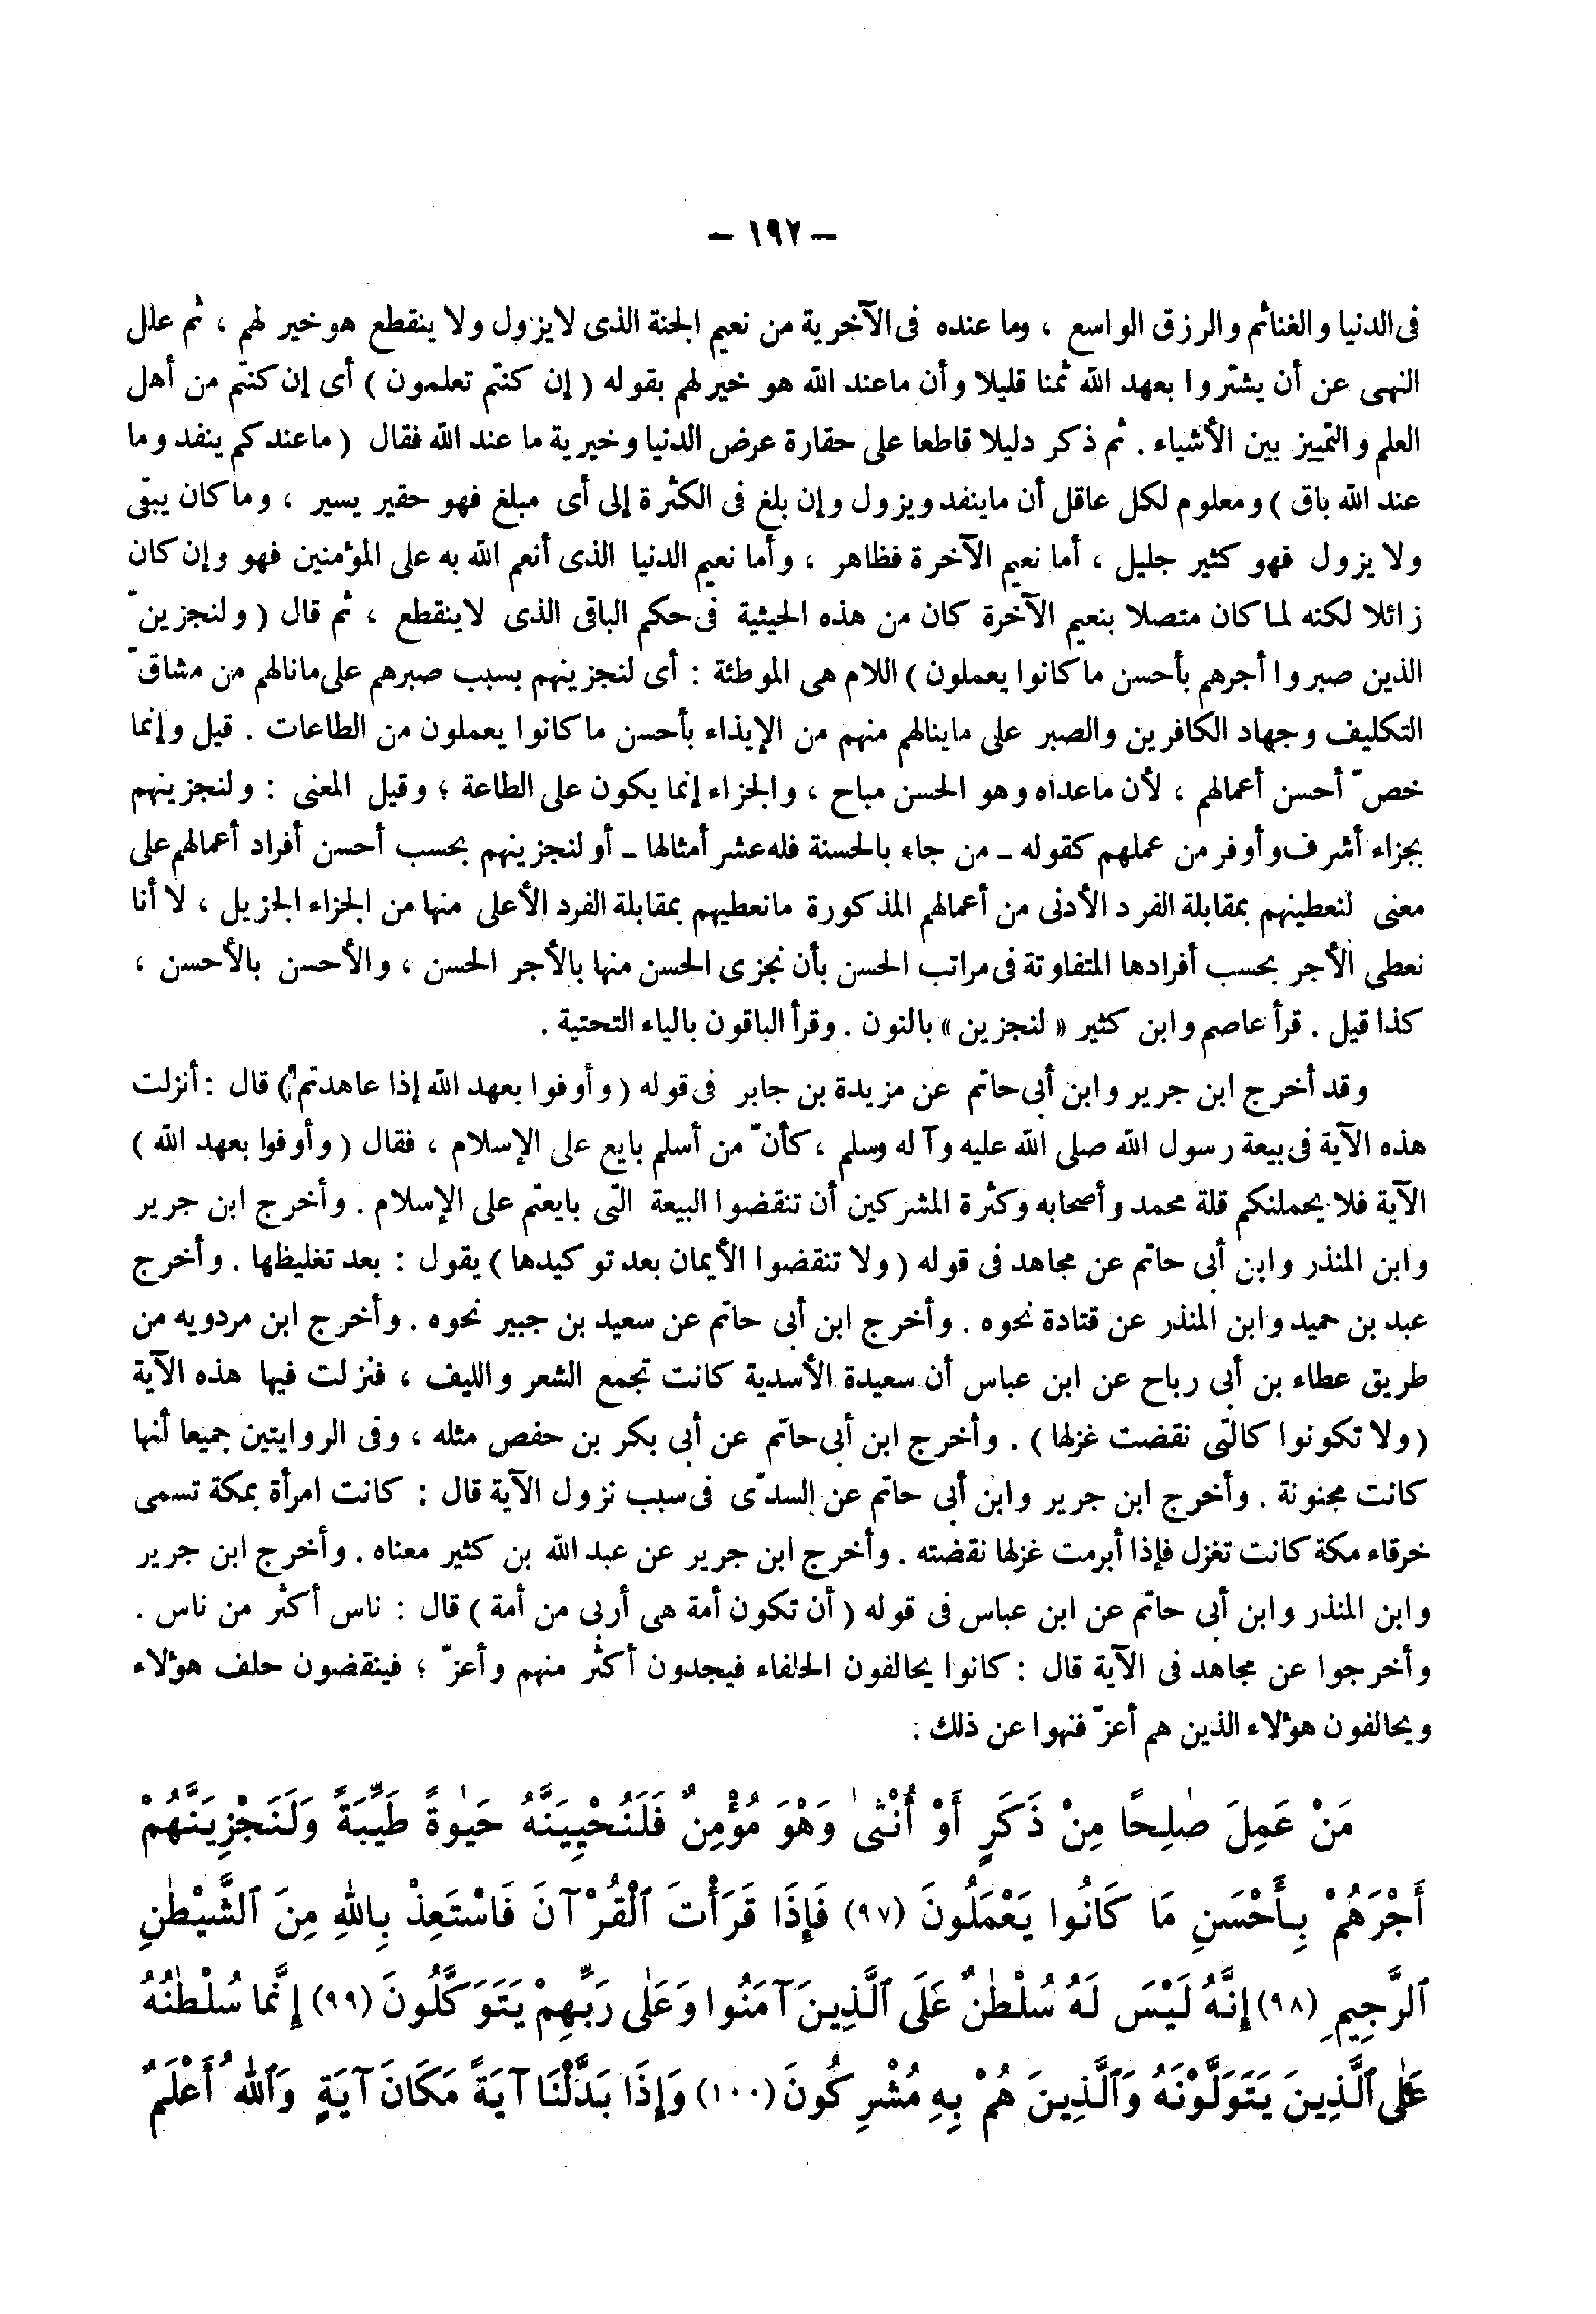 – ١٩٢ –
فى الدنيا والغنائم والرزق الواسع ، وما عنده فى الآخرية من نعيم الجنة الذى لايزول ولا ينقطع هو خير لهم ، ثم علل
النهى عن أن يشتروا بعهد الله ثمنا قليلا وأن ماعند الله هو خير لهم بقوله ( إن كنتم تعلمون ) أى إن كنتم من أهل
العلم والتمييز بين الأشياء . ثم ذكر دليلا قاطعا على حقارة عرض الدنيا وخيرية ما عند الله فقال ( ماعندكم ينفد وما
عند الله باق ) ومعلوم لكل عاقل أن ماينفد ويزول وإن بلغ فى الكثرة إلى أى مبلغ فهو حقير يسير ، وما كان يبقى
ولا يزول فهو كثير جليل ، أما نعيم الآخرة فظاهر ، وأما نعيم الدنيا الذى أنعم الله به على المؤمنين فهو وإن كان
زائلا لكنه لما كان متصلا بنعيم الآخرة كان من هذه الحيثية فى حكم الباقى الذى لاينقطع ، ثم قال ( ولنجزينّ
الذين صبروا أجرهم بأحسن ما كانوا يعملون ) اللام هى الموطئة : أى لنجزينهم بسبب صبرهم على مانالهم من مشاقّ
التكليف وجهاد الكافرين والصبر على ماينالهم منهم من الإيذاء بأحسن ما كانوا يعملون من الطاعات . قيل وإنما
خصّ أحسن أعمالهم ، لأن ماعداه وهو الحسن مباح ، والجزاء إنما يكون على الطاعة ؛ وقيل المعنى : ولنجزينهم
بجزاء أشرف وأوفر من عملهم كقوله ـ من جاء بالحسنة فله عشر أمثالها ـ أو لنجزينهم بحسب أحسن أفراد أعمالهم على
معنى لنعطينهم بمقابلة الفرد الأدنى من أعمالهم المذكورة مانعطيهم بمقابلة الفرد الأعلى منها من الجزاء الجزيل ، لا أنا
نعطى الأجر بحسب أفرادها المتفاوتة فى مراتب الحسن بأن نجزى الحسن منها بالأجر الحسن ، والأحسن بالأحسن ،
كذا قيل . قرأ عاصم وابن كثير « لنجزين » بالنون . وقرأ الباقون بالياء التحتية .
وقد أخرج ابن جرير وابن أبى حاتم عن مزيدة بن جابر فى قوله ( وأوفوا بعهد الله إذا عاهدتم ) قال : أنزلت
هذه الآية فى بيعة رسول الله صلى الله عليه وآله وسلم ، كأنّ من أسلم بايع على الإسلام ، فقال ( وأوفوا بعهد الله )
الآية فلا يحملنكم قلة محمد وأصحابه وكثرة المشركين أن تنقضوا البيعة التى بايعتم على الإسلام . وأخرج ابن جرير
وابن المنذر وابن أبى حاتم عن مجاهد فى قوله ( ولا تنقضوا الأيمان بعد توكيدها ) يقول : بعد تغليظها . وأخرج
عبد بن حميد وابن المنذر عن قتادة نحوه . وأخرج ابن أبى حاتم عن سعيد بن جبير نحوه . وأخرج ابن مردويه من
طريق عطاء بن أبى رباح عن ابن عباس أن سعيدة الأسدية كانت تجمع الشعر والليف ، فنزلت فيها هذه الآية
( ولا تكونوا كالتى نقضت غزلها ) . وأخرج ابن أبى حاتم عن أبى بكر بن حفص مثله ، وفى الروايتين جميعا أنها
كانت مجنونة . وأخرج ابن جرير وابن أبى حاتم عن السدّى فى سبب نزول الآية قال : كانت امرأة بمكة تسمى
خرقاء مكة كانت تغزل فإذا أبرمت غزلها نقضته . وأخرج ابن جرير عن عبد الله بن كثير معناه . وأخرج ابن جرير
وابن المنذر وابن أبى حاتم عن ابن عباس فى قوله ( أن تكون أمة هى أربى من أمة ) قال : ناس أكثر من ناس .
وأخرجوا عن مجاهد فى الآية قال : كانوا يحالفون الحلفاء فيجدون أكثر منهم وأعزّ ؛ فينقضون حلف هؤلاء
ويحالفون هؤلاء الذين هم أعزّ فنهوا عن ذلك .
مَنْ عَمِلَ صٰلِحًا مِنْ ذَكَرٍ أَوْ أُنْثىٰ وَهْوَ مُؤْمِنٌ فَلَنُحْيِيَنَّهُ حَيٰوةً طَيِّبَةً وَلَنَجْزِيَنَّهُمْ
أَجْرَهُمْ بِأَحْسَنِ مَا كَانُوا يَعْمَلُونَ (٩٧) فَإِذَا قَرَأْتَ ٱلْقُرْآنَ فَاسْتَعِذْ بِاللهِ مِنَ ٱلشَّيْطٰنِ
ٱلرَّجِيمِ (٩٨) إِنَّهُ لَيْسَ لَهُ سُلْطٰنٌ عَلَى ٱلَّذِينَ آمَنُوا وَعَلٰى رَبِّهِمْ يَتَوَكَّلُونَ (٩٩) إِنَّمَا سُلْطٰنُهُ
عَلٰى ٱلَّذِينَ يَتَوَلَّوْنَهُ وَٱلَّذِينَ هُمْ بِهِ مُشْرِكُونَ (١٠٠) وَإِذَا بَدَّلْنَا آيَةً مَكَانَ آيَةٍ وَٱللهُ أَعْلَمُ